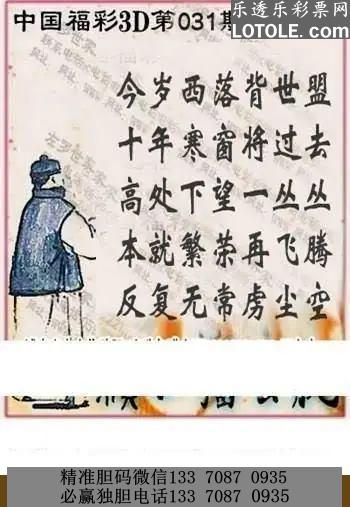 乐透乐彩票网
中国福彩3D第031期
LOTOLE.COM
今岁西落背世盟
十年寒窗将过去
高处下望一丛丛
本就繁荣再飞腾
反复无常虏尘空
精准胆码微信133 7087 0935
必赢独胆电话133 7087 0935